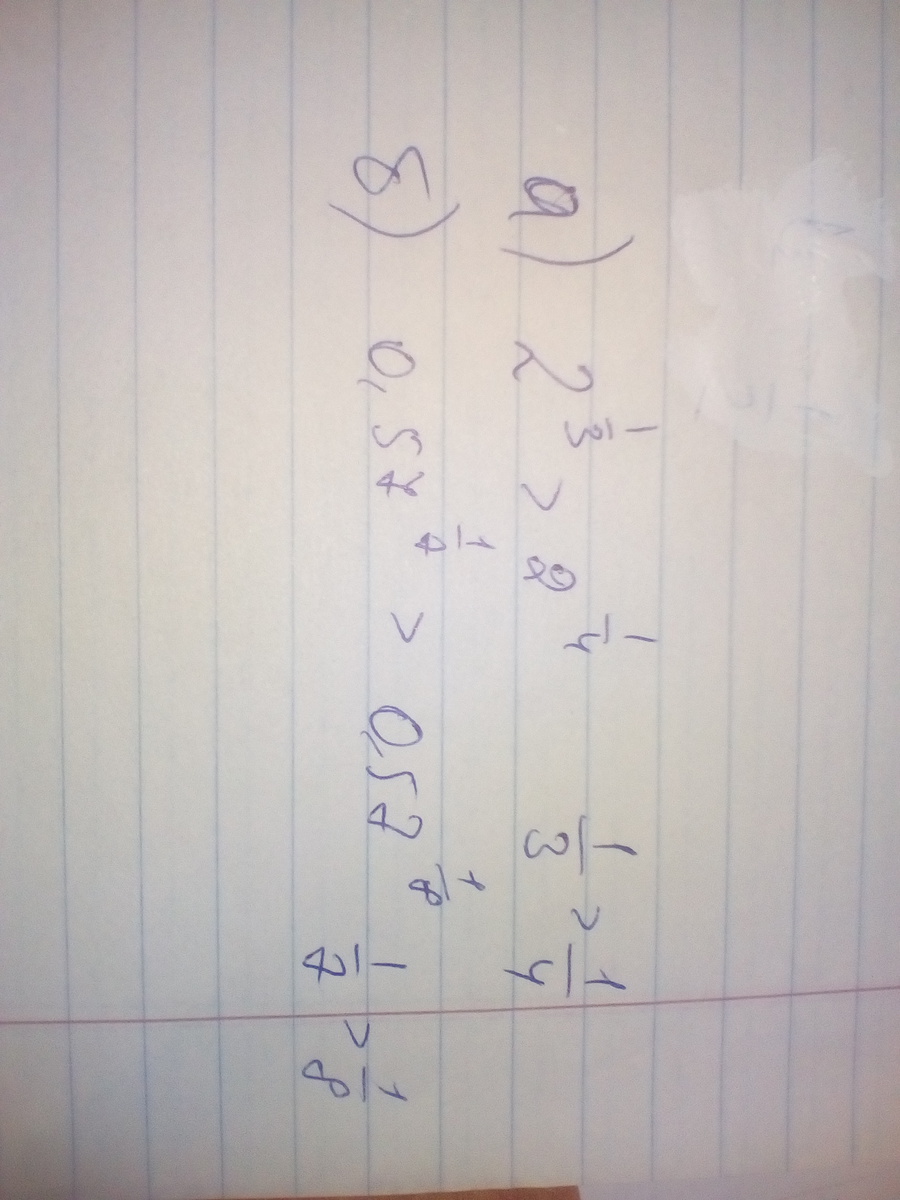 а) 2^(1/3) > 2^(1/4) 1/3 > 1/4
б) 0,57^(1/7) > 0,57^(1/8) 1/7 > 1/8